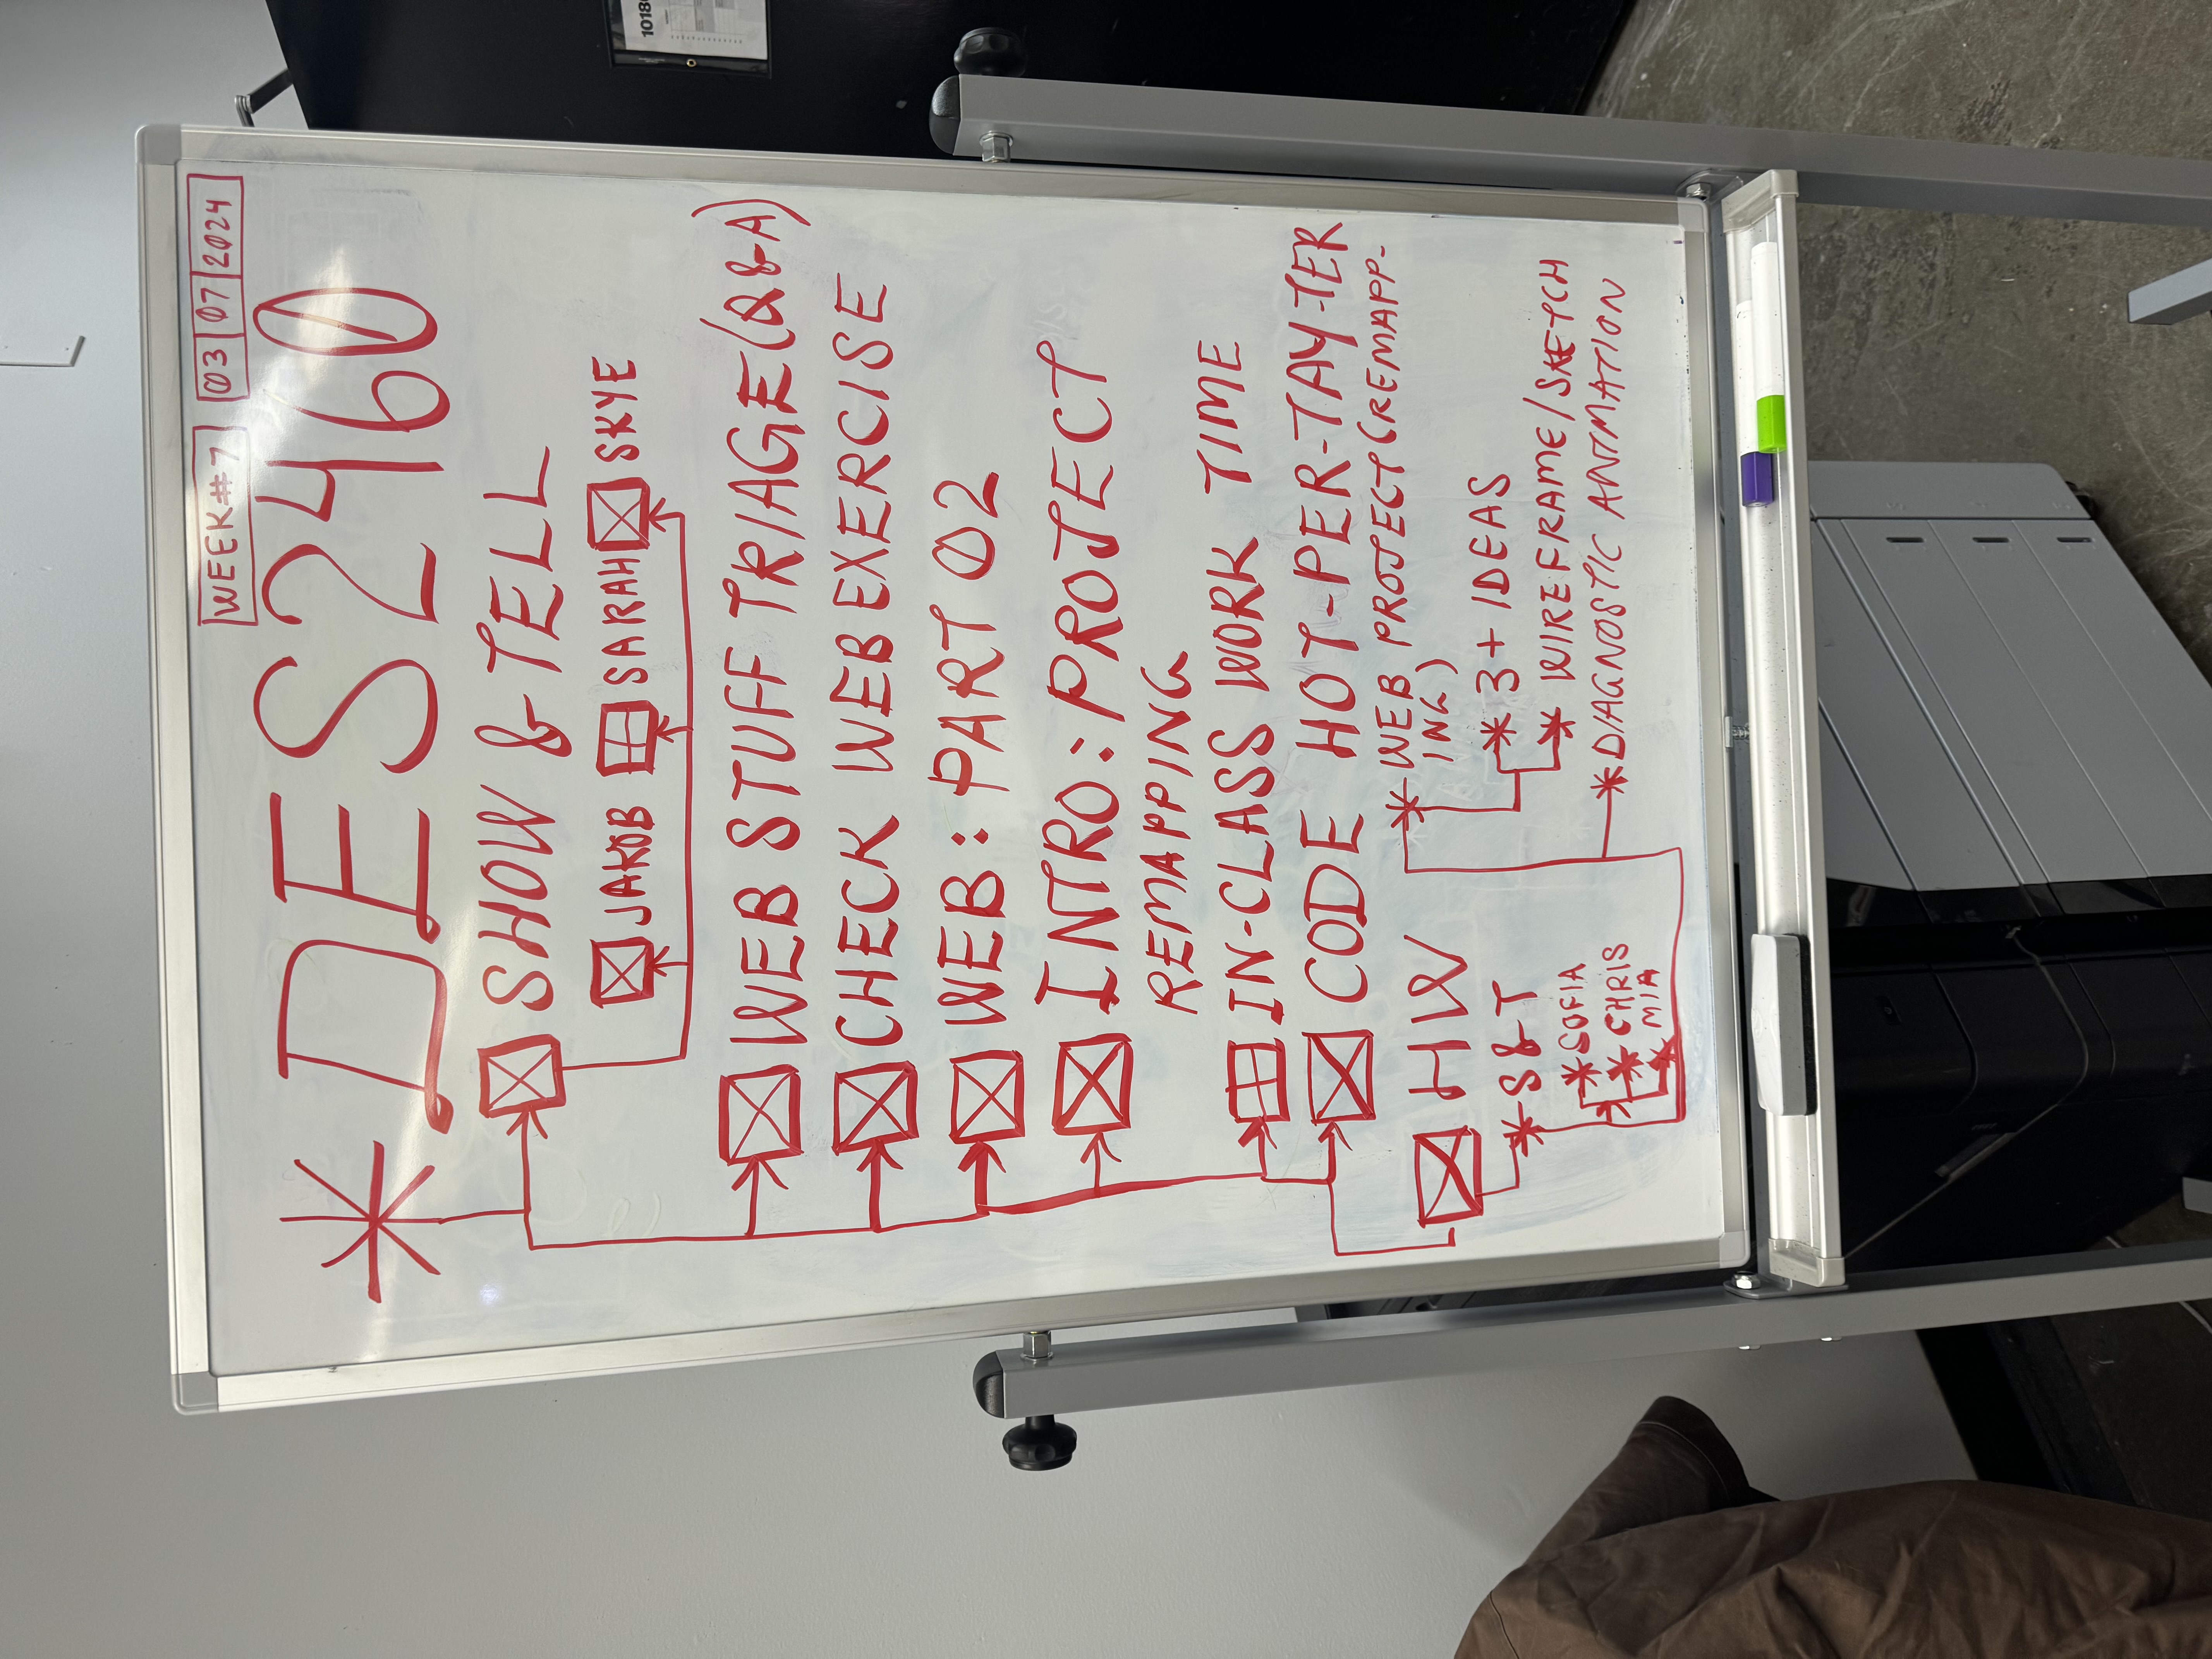 WEEK#7 03 07 2024
*DES2460
SHOW & TELL
JAKOB SARAH SKYE
WEB STUFF TRIAGE (Q&A)
CHECK WEB EXERCISE
WEB: PART 02
INTRO: PROJECT
REMAPPING
IN-CLASS WORK TIME
CODE HOT-PER-TAY-TER
HW
*WEB PROJECT (REMAPP-
ING)
*3+ IDEAS
*WIREFRAME/SKETCH
*DIAGNOSTIC ANIMATION
*S&T
*SOFIA
*CHRIS
*MIA
1018